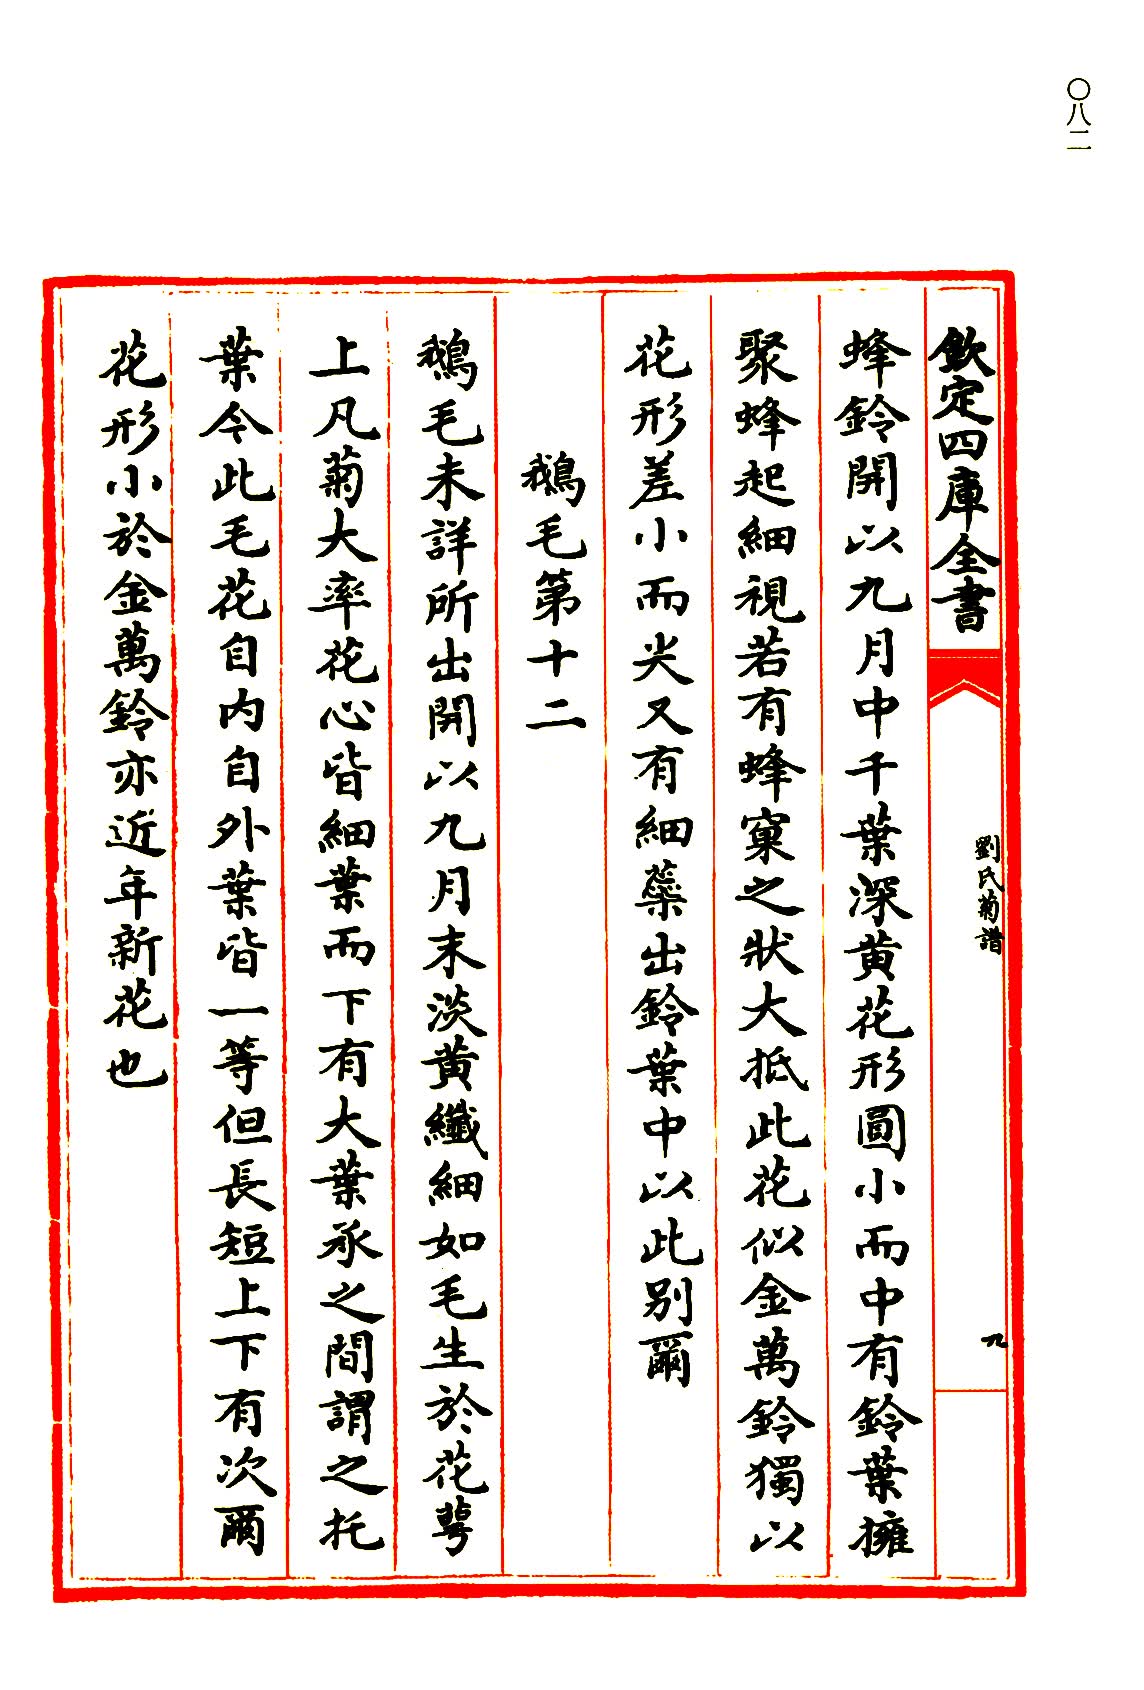 〇八二
欽定四庫全書
劉氏菊譜
九
蜂鈴開以九月中千葉深黄花形圓小而中有鈴葉擁
聚蜂起細視若有蜂窠之狀大抵此花似金萬鈴獨以
花形差小而尖又有細蘂出鈴葉中以此别爾
鵝毛第十二
鵝毛未詳所出開以九月末淡黄纎細如毛生於花蕚
上凡菊大率花心皆細葉而下有大葉承之間謂之托
葉今此毛花自内自外葉皆一等但長短上下有次爾
花形小於金萬鈴亦近年新花也